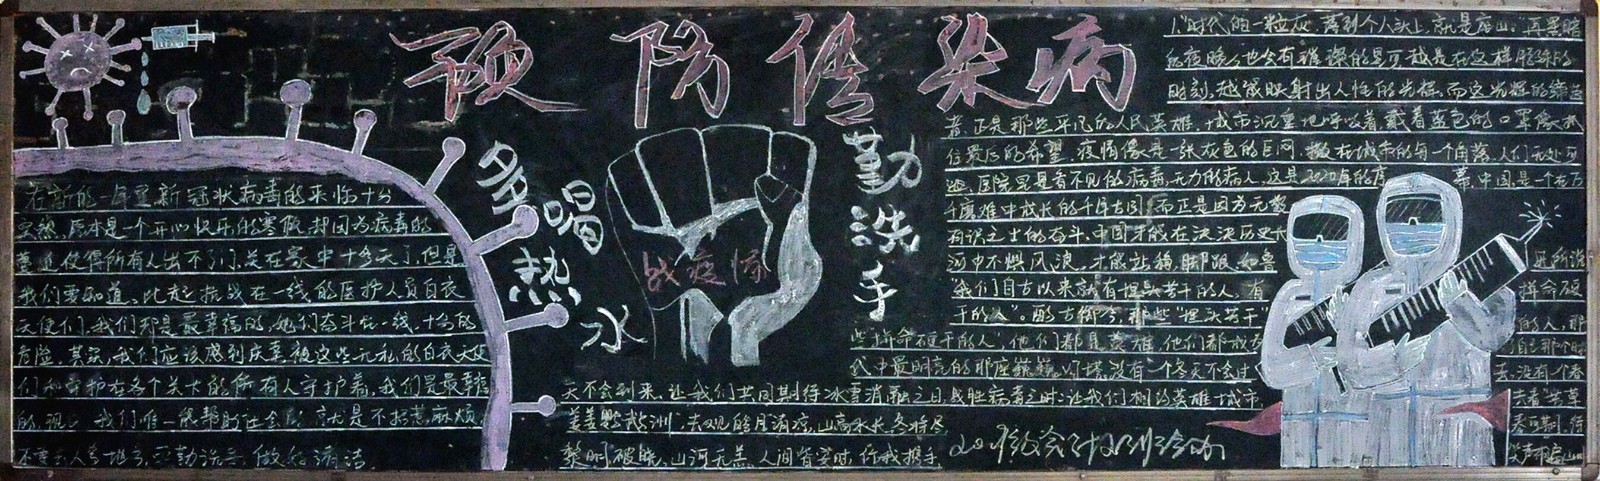 预防传染病
多喝热水
勤洗手
战疫情
在新的一年里新冠状病毒的来临十分
突然,原本是一个开心快乐的寒假,却因为病毒的
蔓延使得所有人出不了门,关在家中十多天了,但是
我们要知道,比起抗战在一线的医护人员白衣
天使们,我们却是最幸福的,她们奋斗在一线,十分的
危险。其实,我们应该感到庆幸被这些无私的白衣天使
们和守护在各个关卡的所有人守护着,我们是最幸福
的,现 我们唯一能帮助社会的,就是不招惹麻烦
不要去人多地方,要勤洗手 做好清洁
"时代的一粒灰,落到个人头上,就是座山。"再黑暗
的夜晚,也会有璀璨的星河,越是在这样 的
时刻,越能映射出人性的光辉。而这光辉的缔造
者,正是那些平凡的人民英雄。城市沉重地呼吸着,戴着蓝色的口罩像抓
住最后的希望。疫情像是一张灰色的巨网,撒在城市的每一个角落,人们无处可
逃。医院里是看不见的病毒,无力的病人,这是2020年的 幕。中国,是一个在万
千磨难中成长的千年古国,而正是因为无数
有识之士的奋斗,中国才能在泱泱历史长
河中不惧风浪,才能站稳脚跟,如鲁 迅所说
"我们自古以来就有埋头苦干的人,有 拼命硬
干的人"。酌古御今,那些"埋头苦干" 的人,那
些拼命硬干的人,他们都是英雄,他们都成为 自己那个时
代中最明亮的那座 。 没有一个冬天不会过 去,没有一个春
天不会到来,让我们共同期待冰雪消融之日,战胜病毒之时;让我们相约英雄城市, 去看"芳草
萋萋鹦鹉洲",去观皓月清凉,山高水长。冬将尽 春可期,待
黎明破晓,山河无恙,人间皆安时,你我携手 笑声